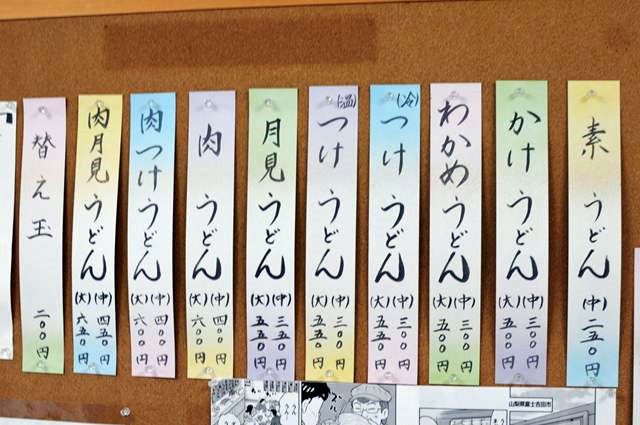 素うどん
(中)
二五〇円
かけうどん
(中)三〇〇円
(大)五五〇円
わかめうどん
(中)三〇〇円
(大)五五〇円
(冷)
つけうどん
(中)三〇〇円
(大)五五〇円
(温)
つけうどん
(中)三〇〇円
(大)五五〇円
月見うどん
(中)三五〇円
(大)五五〇円
肉うどん
(中)四〇〇円
(大)六〇〇円
肉つけうどん
(中)四〇〇円
(大)六〇〇円
肉月見うどん
(中)四五〇円
(大)六五〇円
替え玉
二〇〇円
山梨県富士吉田市